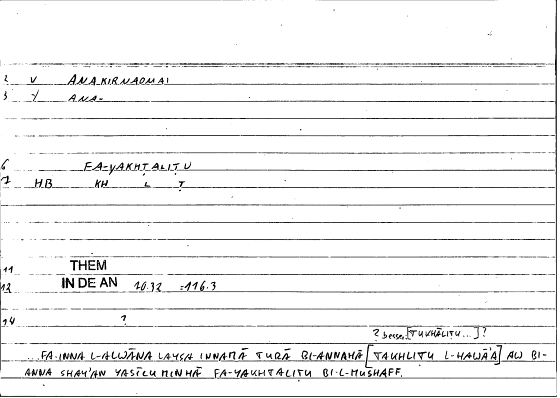 2 V ANAKIRNAOMAI
3 Y ANA-
6 FA-YAKHTALIṬU
7 HB KH L Ṭ
11 THEM
12 IN DE AN 10.32 =116.3
14 ?
? besser [TUKHĀLIṬU...]?
...FA-INNA L-ALWĀNA LAYSA INNAMĀ TURĀ BI-ANNAHĀ [TAKHLIṬU L-HAWĀ'A] AW BI-
ANNA SHAY'AN YASĪLU MINHĀ FA-YAKHTALIṬU BI-L-MUSHAFF.